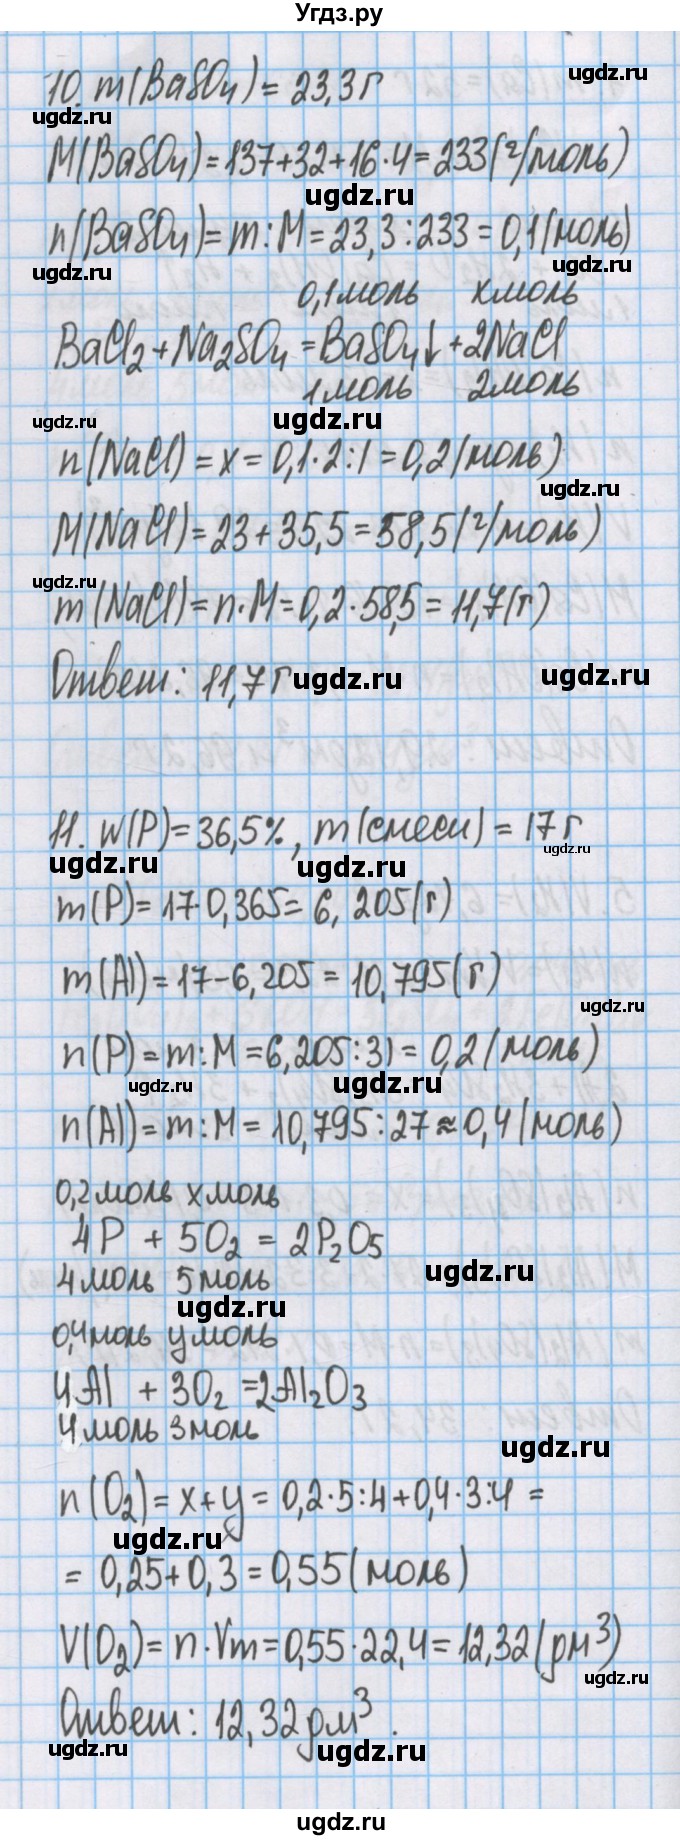 Угдз.ру
10. m(BaSO₄) = 23,3 г
ugdz.ru
ugdz.ru
M(BaSO₄) = 137+32+16·4 = 233 (г/моль)
ugdz.ru
n(BaSO₄) = m:M = 23,3:233 = 0,1 (моль)
ugdz.ru
ugdz.ru
0,1 моль х моль
BaCl₂ + Na₂SO₄ = BaSO₄↓ + 2NaCl
1 моль 2 моль
ugdz.ru
ugdz.ru
n(NaCl) = x = 0,1·2:1 = 0,2 (моль)
ugdz.ru
M(NaCl) = 23+35,5 = 58,5 (г/моль)
ugdz.ru
m(NaCl) = n·M = 0,2·58,5 = 11,7 (г)
Ответ: 11,7 г
ugdz.ru
ugdz.ru
11. w(P) = 36,5%, m(смеси) = 17 г
ugdz.ru
ugdz.ru
ugdz.ru
m(P) = 17·0,365 = 6,205 (г)
m(Al) = 17-6,205 = 10,795 (г)
ugdz.ru
n(P) = m:M = 6,205:31 = 0,2 (моль)
ugdz.ru
ugdz.ru
n(Al) = m:M = 10,795:27 ≈ 0,4 (моль)
0,2 моль х моль
4P + 5O₂ = 2P₂O₅
4 моль 5 моль
ugdz.ru
ugdz.ru
0,4 моль у моль
4Al + 3O₂ = 2Al₂O₃
4 моль 3 моль
ugdz.ru
n(O₂) = x+y = 0,2·5:4+0,4·3:4 =
ugdz.ru
= 0,25+0,3 = 0,55 (моль)
V(O₂) = n·Vm = 0,55·22,4 = 12,32 (дм³)
ugdz.ru
Ответ: 12,32 дм³.
ugdz.ru
ugdz.ru
ugdz.ru